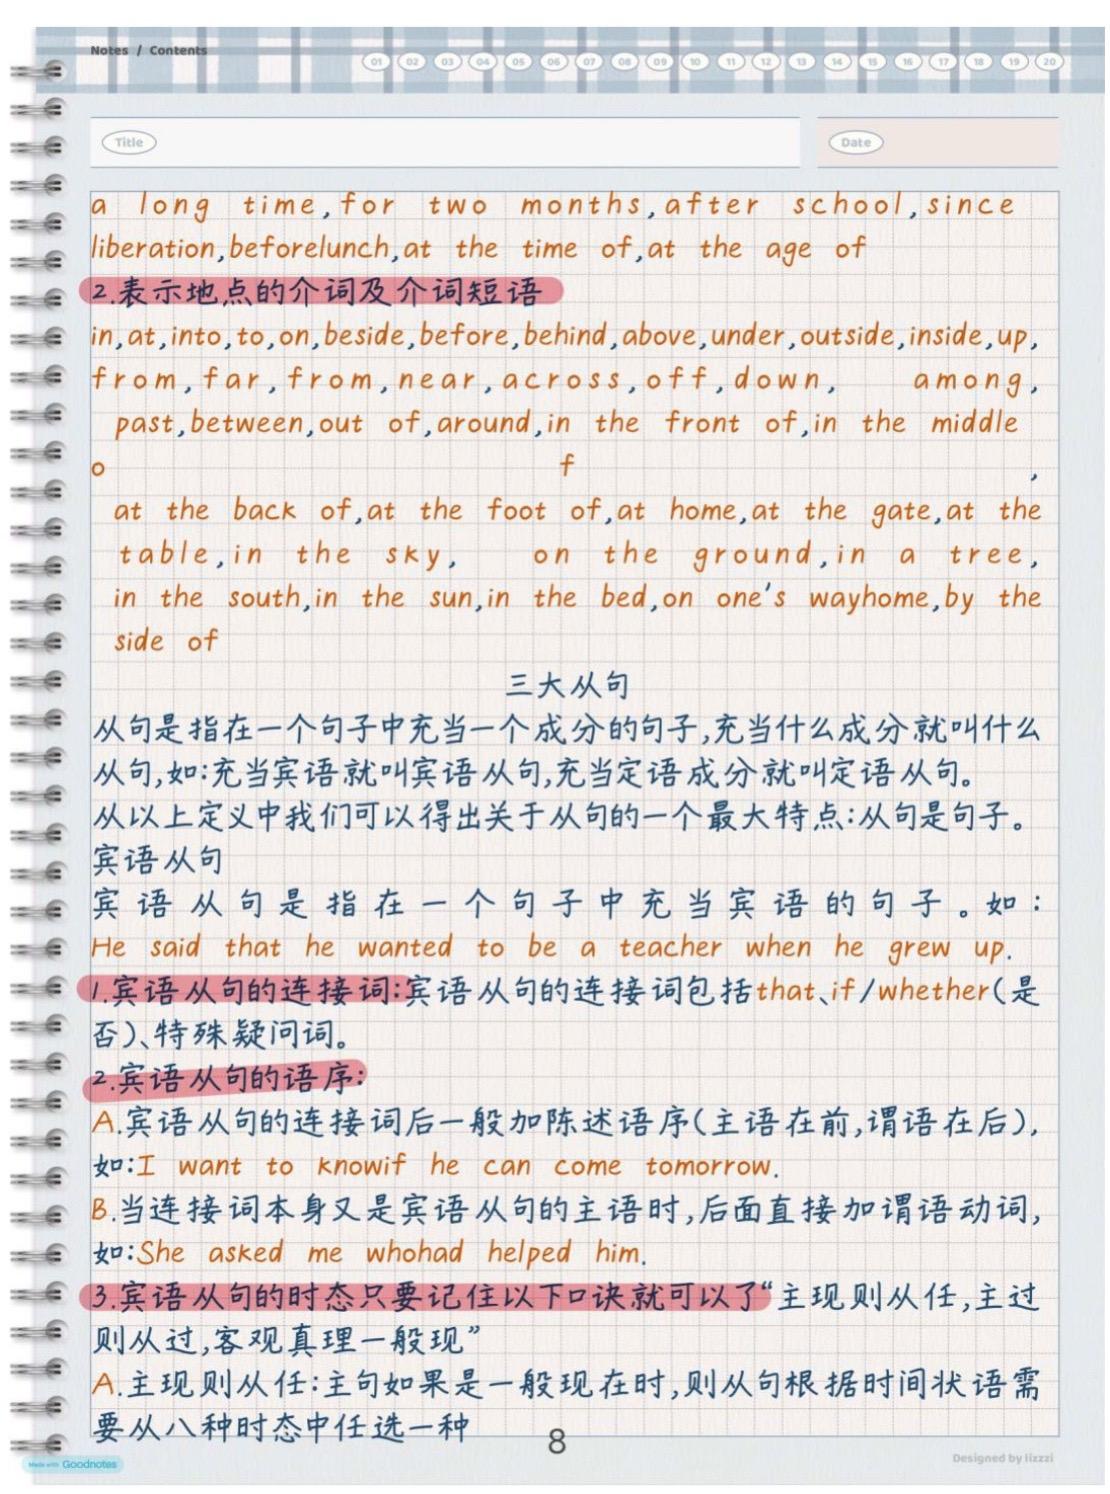 Notes / Contents
01 02 03 04 05 06 07 08 09 10 11 12 13 14 15 16 17 18 19 20
Title Date
a long time,for two months,after school,since
liberation,beforelunch,at the time of,at the age of
2.表示地点的介词及介词短语
in,at,into,to,on,beside,before,behind,above,under,outside,inside,up,
from,far,from,near,across,off,down, among,
past,between,out of,around,in the front of,in the middle
o f ,
at the back of,at the foot of,at home,at the gate,at the
table,in the sky, on the ground,in a tree,
in the south,in the sun,in the bed,on one's wayhome,by the
side of
三大从句
从句是指在一个句子中充当一个成分的句子,充当什么成分就叫什么
从句,如:充当宾语就叫宾语从句,充当定语成分就叫定语从句。
从以上定义中我们可以得出关于从句的一个最大特点:从句是句子。
宾语从句
宾语从句是指在一个句子中充当宾语的句子。如:
He said that he wanted to be a teacher when he grew up.
1.宾语从句的连接词:宾语从句的连接词包括that、if/whether(是
否)、特殊疑问词。
2.宾语从句的语序:
A.宾语从句的连接词后一般加陈述语序(主语在前,谓语在后),
如:I want to knowif he can come tomorrow.
B.当连接词本身又是宾语从句的主语时,后面直接加谓语动词,
如:She asked me whohad helped him.
3.宾语从句的时态只要记住以下口诀就可以了“主现则从任,主过
则从过,客观真理一般现”
A.主现则从任:主句如果是一般现在时,则从句根据时间状语需
要从八种时态中任选一种
8
Made with Goodnotes
Designed by lizzzi